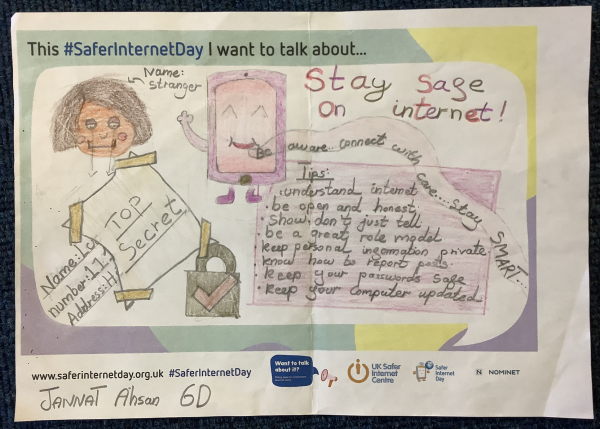 This #SaferInternetDay I want to talk about...
Name:
Stranger
Stay Sage
on internet!
Be aware connect with care... Stay SMART...
TOP
Secret
Name:
number:
Address:
Tips:
• understand internet
• be open and honest
• Show, don't just tell
be a great role model
keep personal information private
know how to report posts
• keep your passwords safe
• keep your computer updated
www.saferinternetday.org.uk #SaferInternetDay
Want to talk
about it?
UK Safer
Internet
Centre
Safer
Internet
Day
N NOMINET
JANNAT Ahsan 6D